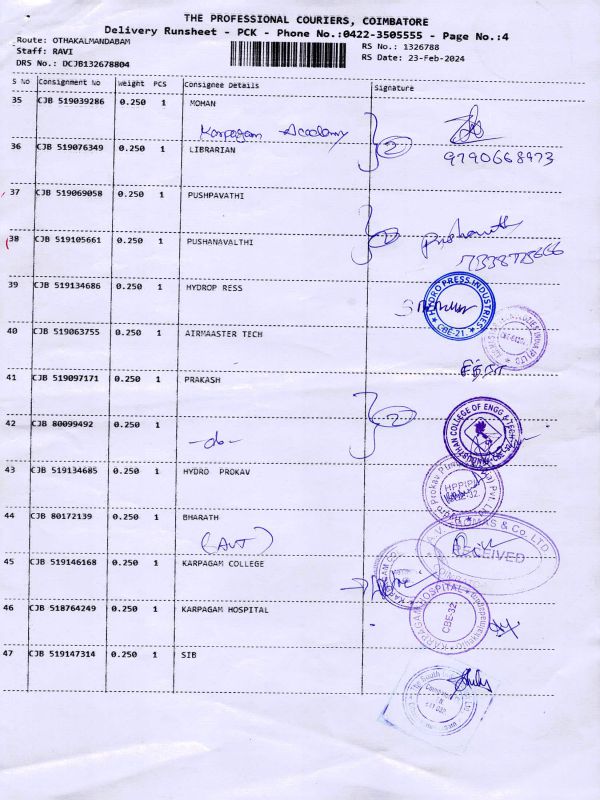 THE PROFESSIONAL COURIERS, COIMBATORE
Delivery Runsheet - PCK - Phone No.:0422-3505555 - Page No.:4
Route: OTHAKALMANDABAM
RS No.: 1326788
Staff: RAVI
RS Date: 23-Feb-2024
DRS No.: DCJB132678804
S No Consignment No Weight PCS Consignee Details Signature
35 CJB 519039286 0.250 1 MOHAN
Karpagam Academy 2
9790668973
36 CJB 519076349 0.250 1 LIBRARIAN
37 CJB 519069058 0.250 1 PUSHPAVATHI
38 CJB 519105661 0.250 1 PUSHANAVALTHI
39 CJB 519134686 0.250 1 HYDROP RESS
HYDRO PRESS INDUSTRIES
CBE-21.
40 CJB 519063755 0.250 1 AIRMAASTER TECH
41 CJB 519097171 0.250 1 PRAKASH
2
42 CJB 80099492 0.250 1
-do-
HINDUSTHAN COLLEGE OF ENGG & TECH
43 CJB 519134685 0.250 1 HYDRO PROKAV
44 CJB 80172139 0.250 1 BHARATH
(AVT)
A.V. THOMAS & Co. LTD
RECEIVED
45 CJB 519146168 0.250 1 KARPAGAM COLLEGE
46 CJB 518764249 0.250 1 KARPAGAM HOSPITAL
KARPAGAM HOSPITAL
CBE-32.
47 CJB 519147314 0.250 1 SIB
The South